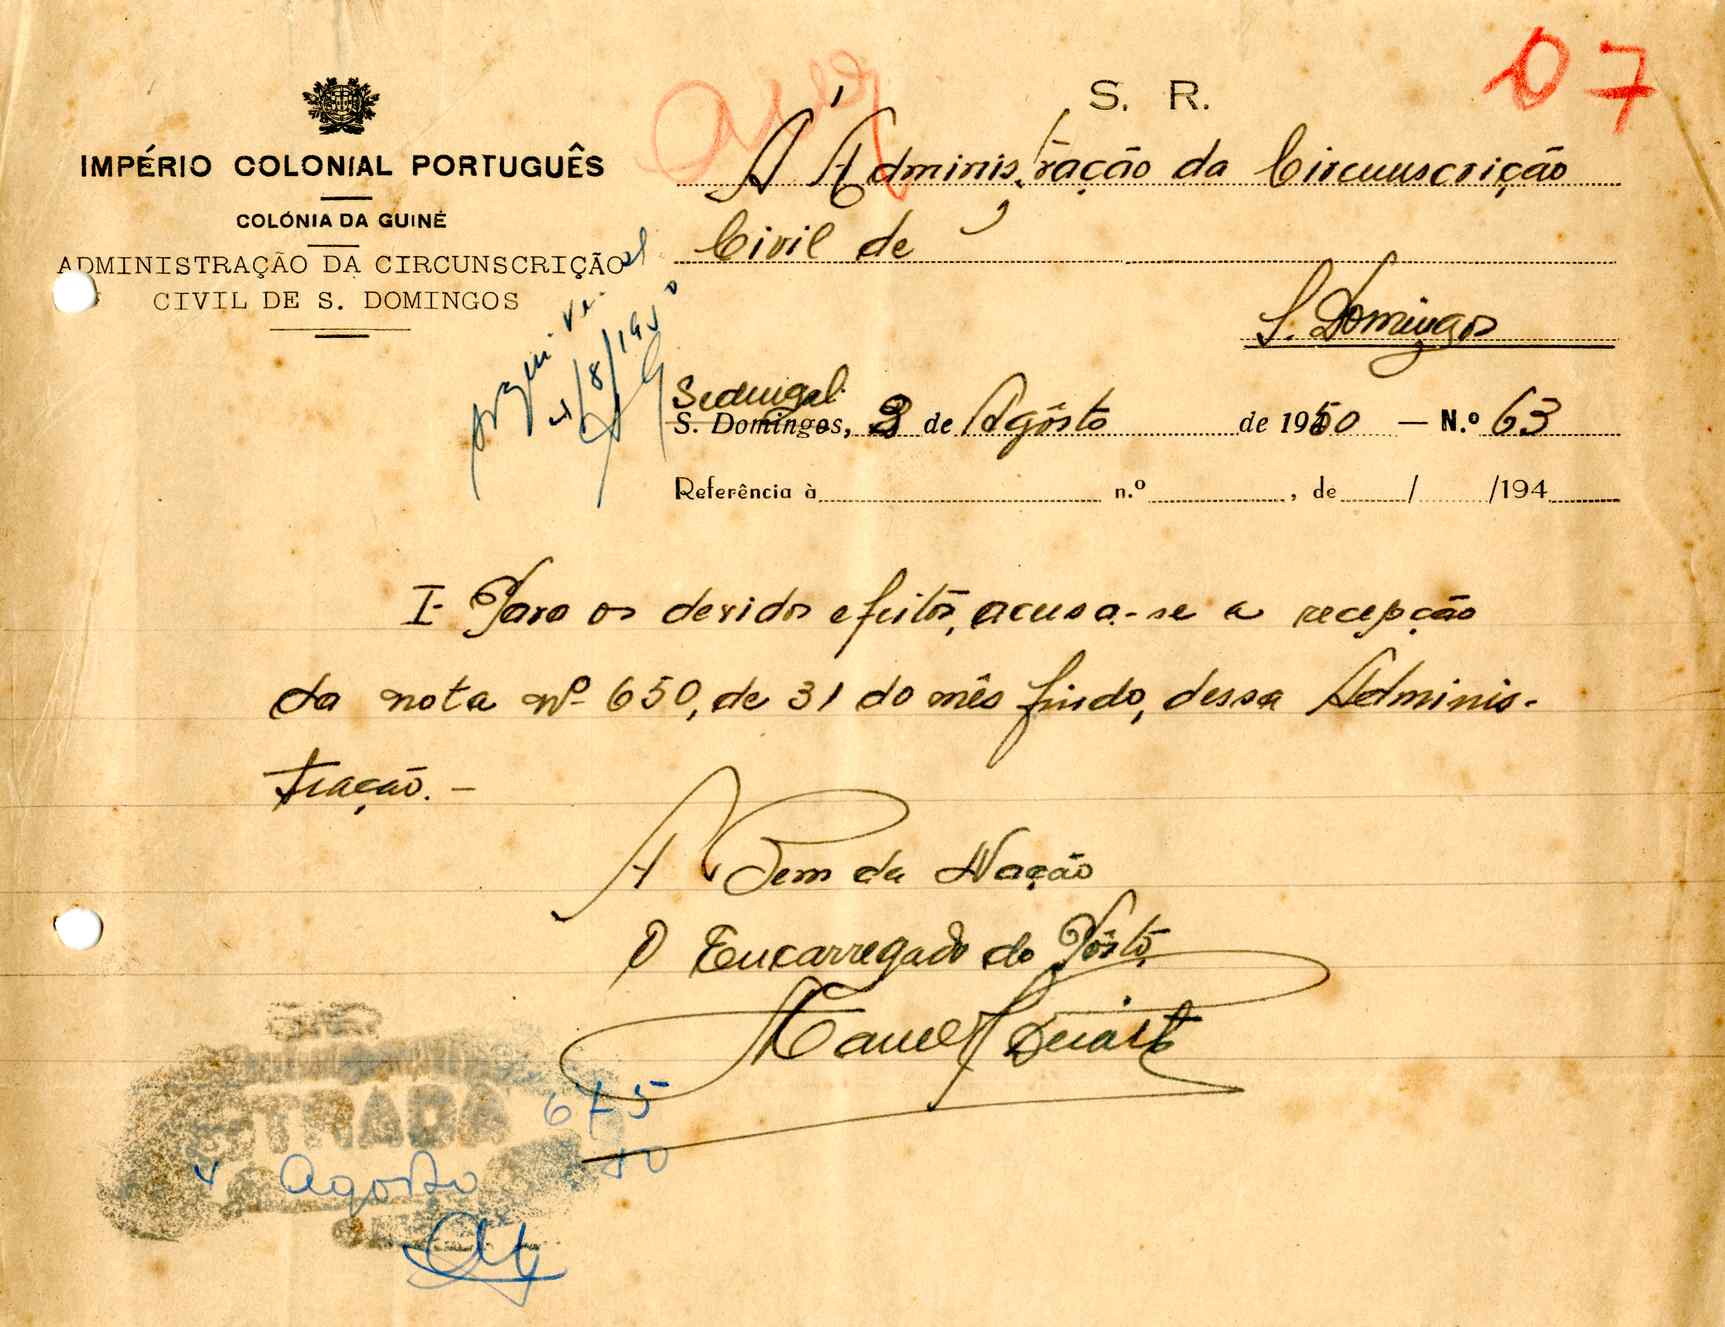 07
S. R.
IMPÉRIO COLONIAL PORTUGUÊS
COLÓNIA DA GUINÉ
ADMINISTRAÇÃO DA CIRCUNSCRIÇÃO
CIVIL DE S. DOMINGOS
À Administração da Circunscrição
Civil de
S. Domingos
Sedengal
S. Domingos, 3 de Agôsto de 1950 — N.º 63
Referência à n.º , de / /194
4/8/1950
I- Para os devidos efeitos, acusa-se a recepção
da nota nº 650, de 31 do mês findo, dessa Adminis-
tração. –
A Bem da Nação
O Encarregado do Pôsto,
Manuel Duarte
675
4 Agosto 50